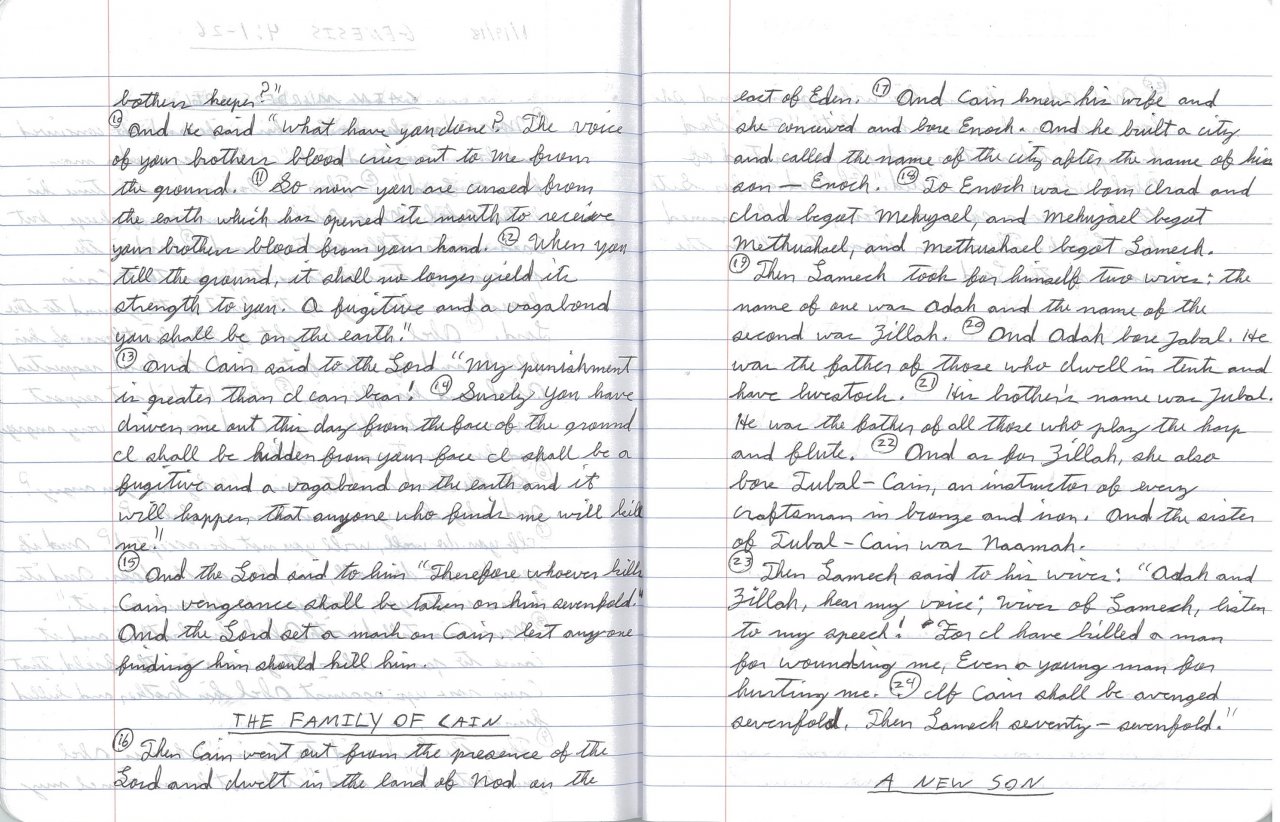 brothers keeper?"
(10) And He said "What have you done? The voice
of your brothers blood cries out to Me from
the ground. (11) So now you are cursed from
the earth which has opened its mouth to receive
your brothers blood from your hand. (12) When you
till the ground, it shall no longer yield its
strength to you. A fugitive and a vagabond
you shall be on the earth."
(13) And Cain said to the Lord "My punishment
is greater than I can bear! (14) Surely You have
driven me out this day from the face of the ground
I shall be hidden from your face I shall be a
fugitive and a vagabond on the earth and it
will happen that anyone who finds me will kill
me."
(15) And the Lord said to him "Therefore whoever kills
Cain vengeance shall be taken on him sevenfold."
And the Lord set a mark on Cain, lest anyone
finding him should kill him.
THE FAMILY OF CAIN
(16) Then Cain went out from the presence of the
Lord and dwelt in the land of Nod on the
east of Eden. (17) And Cain knew his wife and
she conceived and bore Enoch. And he built a city
and called the name of the city after the name of his
son - Enoch. (18) To Enoch was born Irad and
Irad begot Mehujael, and Mehujael begot
Methushael, and Methushael begot Lamech.
(19) Then Lamech took for himself two wives: the
name of one was Adah and the name of the
second was Zillah. (20) And Adah bore Jabal. He
was the father of those who dwell in tents and
have livestock. (21) His brother's name was Jubal.
He was the father of all those who play the harp
and flute. (22) And as for Zillah, she also
bore Tubal-Cain, an instructor of every
craftsman in bronze and iron. And the sister
of Tubal-Cain was Naamah.
(23) Then Lamech said to his wives: "Adah and
Zillah, hear my voice; Wives of Lamech, listen
to my speech! For I have killed a man
for wounding me, Even a young man for
hurting me. (24) If Cain shall be avenged
sevenfold, Then Lamech seventy-sevenfold."
A NEW SON